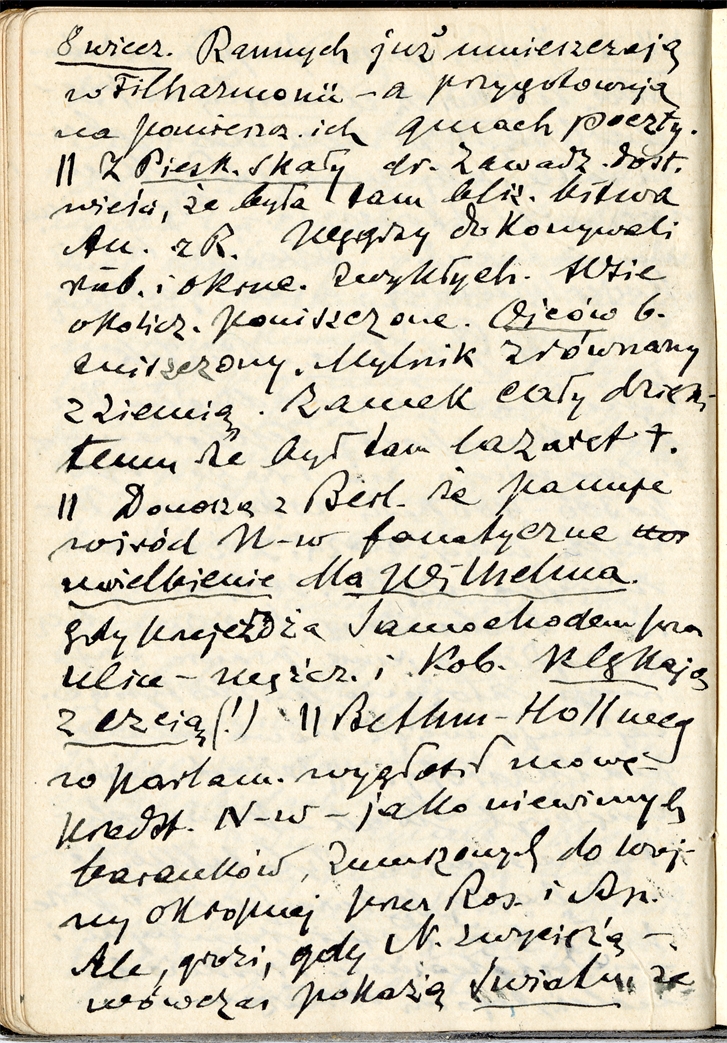 8 wiecz. Rannych już umieszczają
w Filharmonii – a przygotowują
na pomieszcz. ich gmach poczty.
|| Z Piesk. Skały dr. Zawadz. dost.
wieść, że była tam bliż. bitwa
Au. z R. Węgrzy dokonywali
rab. i okruc. zwykłych. Wsie
okolicz. poniszczone. Ojców b.
zniszczony. Młynik zrównany
z ziemią. Zamek cały dzięki
temu że był tam lazaret †.
|| Donoszą z Berl. że panuje
wśród N-w fanatyczne
uwielbienie dla Wilhelma.
gdy przejeżdża samochodem przez
ulice – mężcz. i kob. klękają
z czcią (!) || Bethm-Hollweg
w parlam. wygłosił mowę
przedst. N-w – jako niewinnych
baranków, zmuszonych do woj-
ny okropnej przez Ros. i An.
Ale, grozi, gdy N. zwyciężą –
wówczas pokażą światu, że